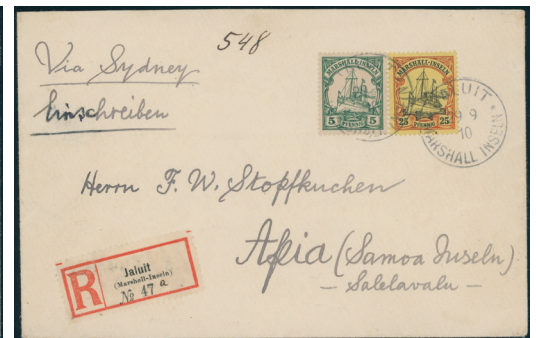 548
Via Sydney
Einschreiben
MARSHALL-INSELN
5 PFENNIG 5
MARSHALL-INSELN
25 PFENNIG 25
JALUIT
9 9
10
MARSHALL INSELN
Herrn F. W. Stopfkuchen
Apia (Samoa Inseln)
– Salelavalu –
R
Jaluit
(Marshall-Inseln)
No 47 a